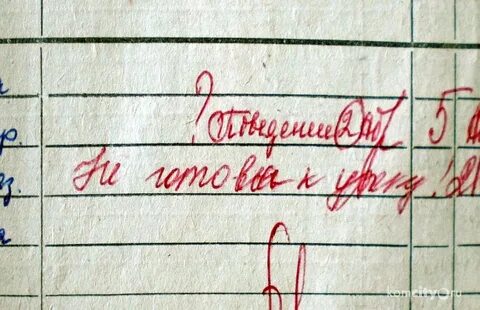 ? Поведение 2 5
Не готова к уроку! 2
р.
з.
komcity.ru